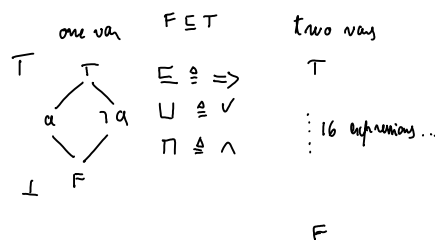 one var F ⊑ T two vars
T T ⊑ ≙ => T
a ¬a ⊔ ≙ ∨
⊓ ≙ ∧ 16 expressions...
⊥ F
F